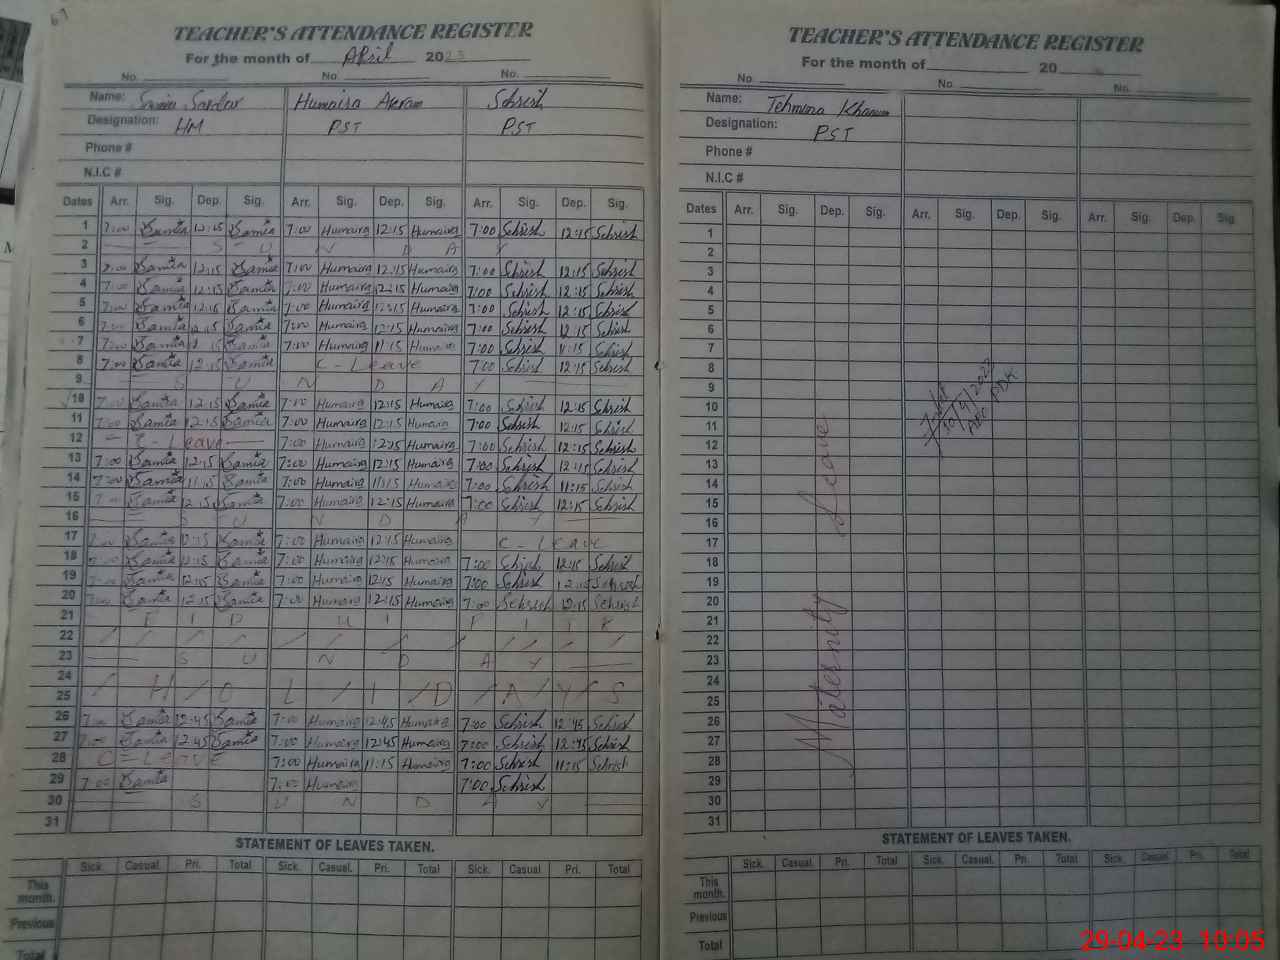 67
TEACHER'S ATTENDANCE REGISTER
For the month of April 2023
No. No. No.
Name: Samia Sardar Humaira Akram Sehrish
Designation: HM PST PST
Phone #
N.I.C #
Dates Arr. Sig. Dep. Sig. Arr. Sig. Dep. Sig. Arr. Sig. Dep. Sig.
1 7:00 Samia 12:15 Samia 7:00 Humaira 12:15 Humaira 7:00 Sehrish 12:15 Sehrish
2 S U N D A Y
3 7:00 Samia 12:15 Samia 7:00 Humaira 12:15 Humaira 7:00 Sehrish 12:15 Sehrish
4 7:00 Samia 12:15 Samia 7:00 Humaira 12:15 Humaira 7:00 Sehrish 12:15 Sehrish
5 7:00 Samia 12:15 Samia 7:00 Humaira 12:15 Humaira 7:00 Sehrish 12:15 Sehrish
6 7:00 Samia 12:15 Samia 7:00 Humaira 12:15 Humaira 7:00 Sehrish 12:15 Sehrish
7 7:00 Samia 11:15 Samia 7:00 Humaira 11:15 Humaira 7:00 Sehrish 11:15 Sehrish
8 7:00 Samia 12:15 Samia C - Leave 7:00 Sehrish 12:15 Sehrish
9 S U N D A Y
10 7:00 Samia 12:15 Samia 7:00 Humaira 12:15 Humaira 7:00 Sehrish 12:15 Sehrish
11 7:00 Samia 12:15 Samia 7:00 Humaira 12:15 Humaira 7:00 Sehrish 12:15 Sehrish
12 C - Leave 7:00 Humaira 12:15 Humaira 7:00 Sehrish 12:15 Sehrish
13 7:00 Samia 12:15 Samia 7:00 Humaira 12:15 Humaira 7:00 Sehrish 12:15 Sehrish
14 7:00 Samia 11:15 Samia 7:00 Humaira 11:15 Humaira 7:00 Sehrish 11:15 Sehrish
15 7:00 Samia 12:15 Samia 7:00 Humaira 12:15 Humaira 7:00 Sehrish 12:15 Sehrish
16 S U N D A Y
17 7:00 Samia 12:15 Samia 7:00 Humaira 12:15 Humaira C - Leave
18 7:00 Samia 12:15 Samia 7:00 Humaira 12:15 Humaira 7:00 Sehrish 12:15 Sehrish
19 7:00 Samia 12:15 Samia 7:00 Humaira 12:15 Humaira 7:00 Sehrish 12:15 Sehrish
20 7:00 Samia 12:15 Samia 7:00 Humaira 12:15 Humaira 7:00 Sehrish 12:15 Sehrish
21 E I D U L F I T R
22
23 S U N D A Y
24
25 H O L I D A Y S
26 7:00 Samia 12:45 Samia 7:00 Humaira 12:45 Humaira 7:00 Sehrish 12:45 Sehrish
27 7:00 Samia 12:45 Samia 7:00 Humaira 12:45 Humaira 7:00 Sehrish 12:45 Sehrish
28 C - Leave 7:00 Humaira 11:15 Humaira 7:00 Sehrish 11:15 Sehrish
29 7:00 Samia 7:00 Humaira 7:00 Sehrish
30 S U N D A Y
31
STATEMENT OF LEAVES TAKEN.
Sick. Casual. Pri. Total Sick. Casual. Pri. Total Sick. Casual Pri. Total
This month.
Previous
Total
TEACHER'S ATTENDANCE REGISTER
For the month of 20
No. No. No.
Name: Tehmina Khanum
Designation: PST
Phone #
N.I.C #
Dates Arr. Sig. Dep. Sig. Arr. Sig. Dep. Sig. Arr. Sig. Dep. Sig
1
2
3
4
5
6
7
8
9
10
11
12
13
14
15
16
17
18
19
20
21
22
23
24
25
26
27
28
29
30
31
Maternity Leave
STATEMENT OF LEAVES TAKEN.
Sick. Casual. Pri. Total Sick. Casual. Pri. Total Sick. Casual Pri. Total
This month.
Previous
Total
29-04-23 10:05